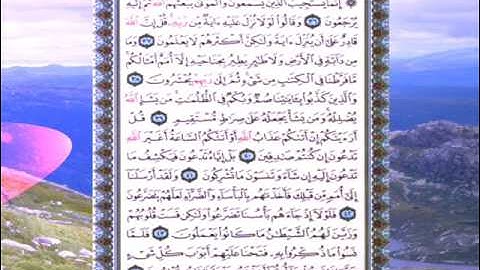 ۞ إِنَّمَا يَسْتَجِيبُ ٱلَّذِينَ يَسْمَعُونَ وَٱلْمَوْتَىٰ يَبْعَثُهُمُ ٱللَّهُ ثُمَّ إِلَيْهِ
يُرْجَعُونَ ٣٦ وَقَالُوا۟ لَوْلَا نُزِّلَ عَلَيْهِ ءَايَةٌ مِّن رَّبِّهِۦ قُلْ إِنَّ ٱللَّهَ
قَادِرٌ عَلَىٰٓ أَن يُنَزِّلَ ءَايَةً وَلَـٰكِنَّ أَكْثَرَهُمْ لَا يَعْلَمُونَ ٣٧ وَمَا
مِن دَآبَّةٍ فِى ٱلْأَرْضِ وَلَا طَـٰٓئِرٍ يَطِيرُ بِجَنَاحَيْهِ إِلَّآ أُمَمٌ أَمْثَالُكُم
مَّا فَرَّطْنَا فِى ٱلْكِتَـٰبِ مِن شَىْءٍ ثُمَّ إِلَىٰ رَبِّهِمْ يُحْشَرُونَ ٣٨
وَٱلَّذِينَ كَذَّبُوا۟ بِـَٔايَـٰتِنَا صُمٌّ وَبُكْمٌ فِى ٱلظُّلُمَـٰتِ مَن يَشَإِ ٱللَّهُ
يُضْلِلْهُ وَمَن يَشَأْ يَجْعَلْهُ عَلَىٰ صِرَٰطٍ مُّسْتَقِيمٍ ٣٩ قُلْ
أَرَءَيْتَكُمْ إِنْ أَتَىٰكُمْ عَذَابُ ٱللَّهِ أَوْ أَتَتْكُمُ ٱلسَّاعَةُ أَغَيْرَ ٱللَّهِ
تَدْعُونَ إِن كُنتُمْ صَـٰدِقِينَ ٤٠ بَلْ إِيَّاهُ تَدْعُونَ فَيَكْشِفُ مَا
تَدْعُونَ إِلَيْهِ إِن شَآءَ وَتَنسَوْنَ مَا تُشْرِكُونَ ٤١ وَلَقَدْ أَرْسَلْنَآ
إِلَىٰٓ أُمَمٍ مِّن قَبْلِكَ فَأَخَذْنَـٰهُم بِٱلْبَأْسَآءِ وَٱلضَّرَّآءِ لَعَلَّهُمْ يَتَضَرَّعُونَ
٤٢ فَلَوْلَآ إِذْ جَآءَهُم بَأْسُنَا تَضَرَّعُوا۟ وَلَـٰكِن قَسَتْ قُلُوبُهُمْ
وَزَيَّنَ لَهُمُ ٱلشَّيْطَـٰنُ مَا كَانُوا۟ يَعْمَلُونَ ٤٣ فَلَمَّا
نَسُوا۟ مَا ذُكِّرُوا۟ بِهِۦ فَتَحْنَا عَلَيْهِمْ أَبْوَٰبَ كُلِّ شَىْءٍ